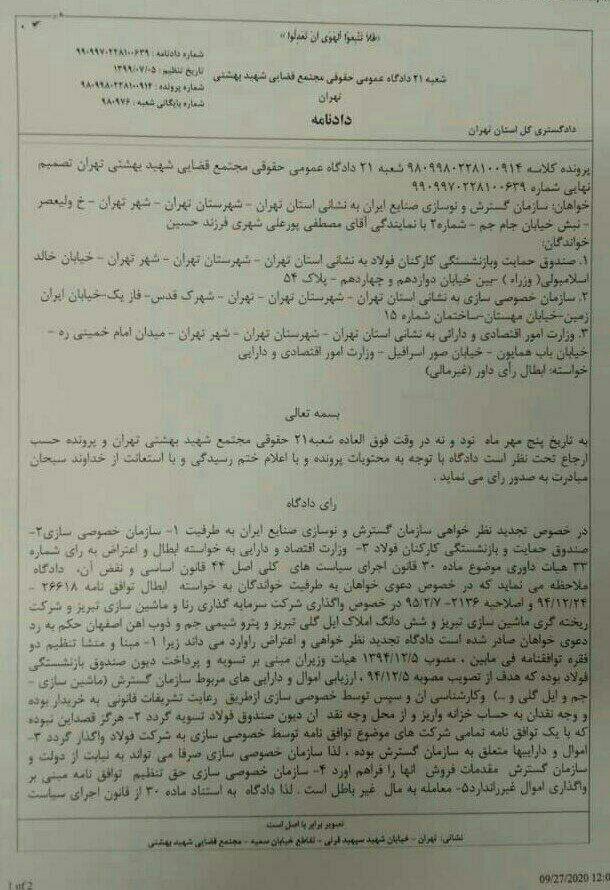 «فلا تتبعوا الهوی ان تعدلوا»
شماره دادنامه : ۹۹۰۹۹۷۰۲۲۸۱۰۰۶۳۹
تاریخ تنظیم : ۱۳۹۹/۰۷/۰۵
شماره پرونده : ۹۸۰۹۹۸۰۲۲۸۱۰۰۹۱۴
شماره بایگانی شعبه : ۹۸۰۹۷۶
شعبه ۲۱ دادگاه عمومی حقوقی مجتمع قضایی شهید بهشتی
تهران
دادنامه
دادگستری کل استان تهران
پرونده کلاسه ۹۸۰۹۹۸۰۲۲۸۱۰۰۹۱۴ شعبه ۲۱ دادگاه عمومی حقوقی مجتمع قضایی شهید بهشتی تهران تصمیم
نهایی شماره ۹۹۰۹۹۷۰۲۲۸۱۰۰۶۳۹
خواهان: سازمان گسترش و نوسازی صنایع ایران به نشانی استان تهران - شهرستان تهران - شهر تهران - خ ولیعصر
- نبش خیابان جام جم - شماره۲ با نمایندگی آقای مصطفی پورعلی شهری فرزند حسین
خواندگان:
۱. صندوق حمایت وبازنشستگی کارکنان فولاد به نشانی استان تهران - شهرستان تهران - شهر تهران - خیابان خالد
اسلامبولی( وزراء ) -بین خیابان دوازدهم و چهاردهم - پلاک ۵۴
۲. سازمان خصوصی سازی به نشانی استان تهران - شهرستان تهران - تهران - شهرک قدس-فاز یک-خیابان ایران
زمین-خیابان مهستان-ساختمان شماره ۱۵
۳. وزارت امور اقتصادی و دارائی به نشانی استان تهران - شهرستان تهران - شهر تهران - میدان امام خمینی ره -
خیابان باب همایون - خیابان صور اسرافیل - وزارت امور اقتصادی و دارایی
خواسته: ابطال رأی داور (غیرمالی)
بسمه تعالی
به تاریخ پنج مهر ماه نود و نه در وقت فوق العاده شعبه۲۱ حقوقی مجتمع شهید بهشتی تهران و پرونده حسب
ارجاع تحت نظر است دادگاه با توجه به محتویات پرونده و با اعلام ختم رسیدگی و با استعانت از خداوند سبحان
مبادرت به صدور رای می نماید .
رای دادگاه
در خصوص تجدید نظر خواهی سازمان گسترش و نوسازی صنایع ایران به طرفیت ۱- سازمان خصوصی سازی۲-
صندوق حمایت و بازنشستگی کارکنان فولاد ۳- وزارت اقتصاد و دارایی به خواسته ابطال و اعتراض به رای شماره
۳۳ هیات داوری موضوع ماده ۳۰ قانون اجرای سیاست های کلی اصل ۴۴ قانون اساسی و نقض آن، دادگاه
ملاحظه می نماید که در خصوص دعوی خواهان به طرفیت خواندگان به خواسته ابطال توافق نامه ۲۶۶۱۸ -
۹۴/۱۲/۲۴ و اصلاحیه ۲۱۳۶- ۹۵/۲/۷ در خصوص واگذاری شرکت سرمایه گذاری رنا و ماشین سازی تبریز و شرکت
ریخته گری ماشین سازی تبریز و شش دانگ املاک ایل گلی تبریز و پترو شیمی جم و ذوب اهن اصفهان حکم به رد
دعوی خواهان صادر شده است دادگاه تجدید نظر خواهی و اعتراض راوارد می داند زیرا ۱- مبنا و منشا تنظیم دو
فقره توافقنامه فی مابین ، مصوب ۱۳۹۴/۱۲/۵ هیات وزیران مبنی بر تسویه و پرداخت دیون صندوق بازنشستگی
فولاد بوده که هدف از تصویب مصوبه ۹۴/۱۲/۵ ، ارزیابی اموال و دارایی های مربوط سازمان گسترش (ماشین سازی -
جم و ایل گلی و ..) وکارشناسی ان و سپس توسط خصوصی سازی ازطریق رعایت تشریفات قانونی به خریدار بوده
و وجه نقدان به حساب خزانه واریز و از محل وجه نقد ان دیون صندوق فولاد تسویه گردد ۲- هرگز قصداین نبوده
که با یک توافق نامه تمامی شرکت های موضوع توافق نامه توسط خصوصی سازی به شرکت فولاد واگذار گردد ۳-
اموال و داراییها متعلق به سازمان گسترش بوده ، لذا سازمان خصوصی سازی صرفا می تواند به نیابت از دولت و
سازمان گسترش مقدمات فروش انها را فراهم اورد ۴- سازمان خصوصی سازی حق تنظیم توافق نامه مبنی بر
واگذاری اموال غیرراندارد۵- معامله به مال غیر باطل است . لذا دادگاه به استناد ماده ۳۰ از قانون اجرای سیاست
تصویر برابر با اصل است
نشانی: تهران - خیابان شهید سپهبد قرنی - تقاطع خیابان سمیه - مجتمع قضایی شهید بهشتی
1 of 2
09/27/2020 12:0